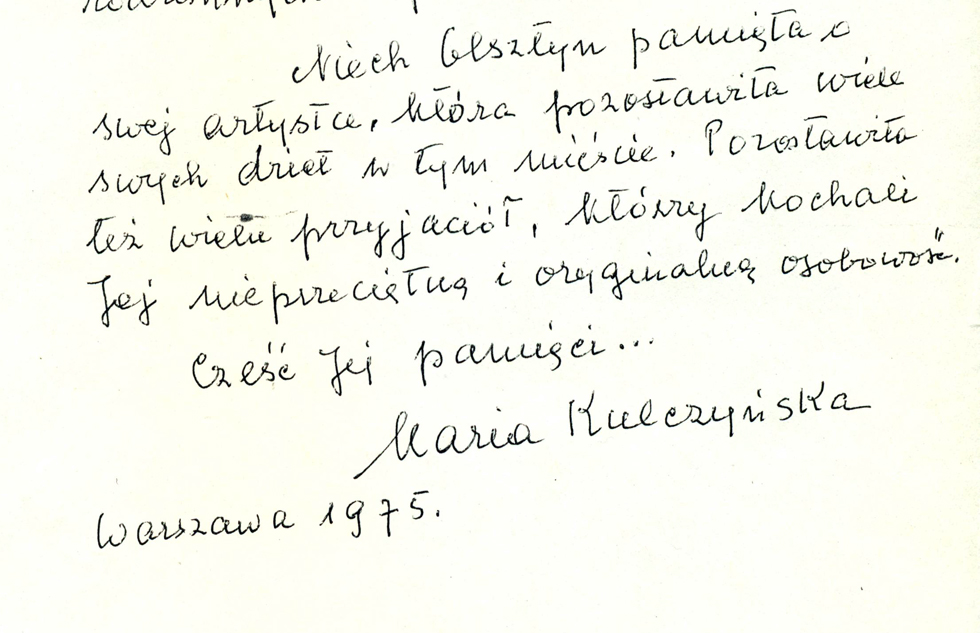 Niech Olsztyn pamięta o
swej artystce, która pozostawiła wiele
swych dzieł w tym mieście. Pozostawiła
też wielu przyjaciół, którzy kochali
Jej nieprzeciętną i oryginalną osobowość.
Cześć Jej pamięci...
Maria Kulczyńska
Warszawa 1975.